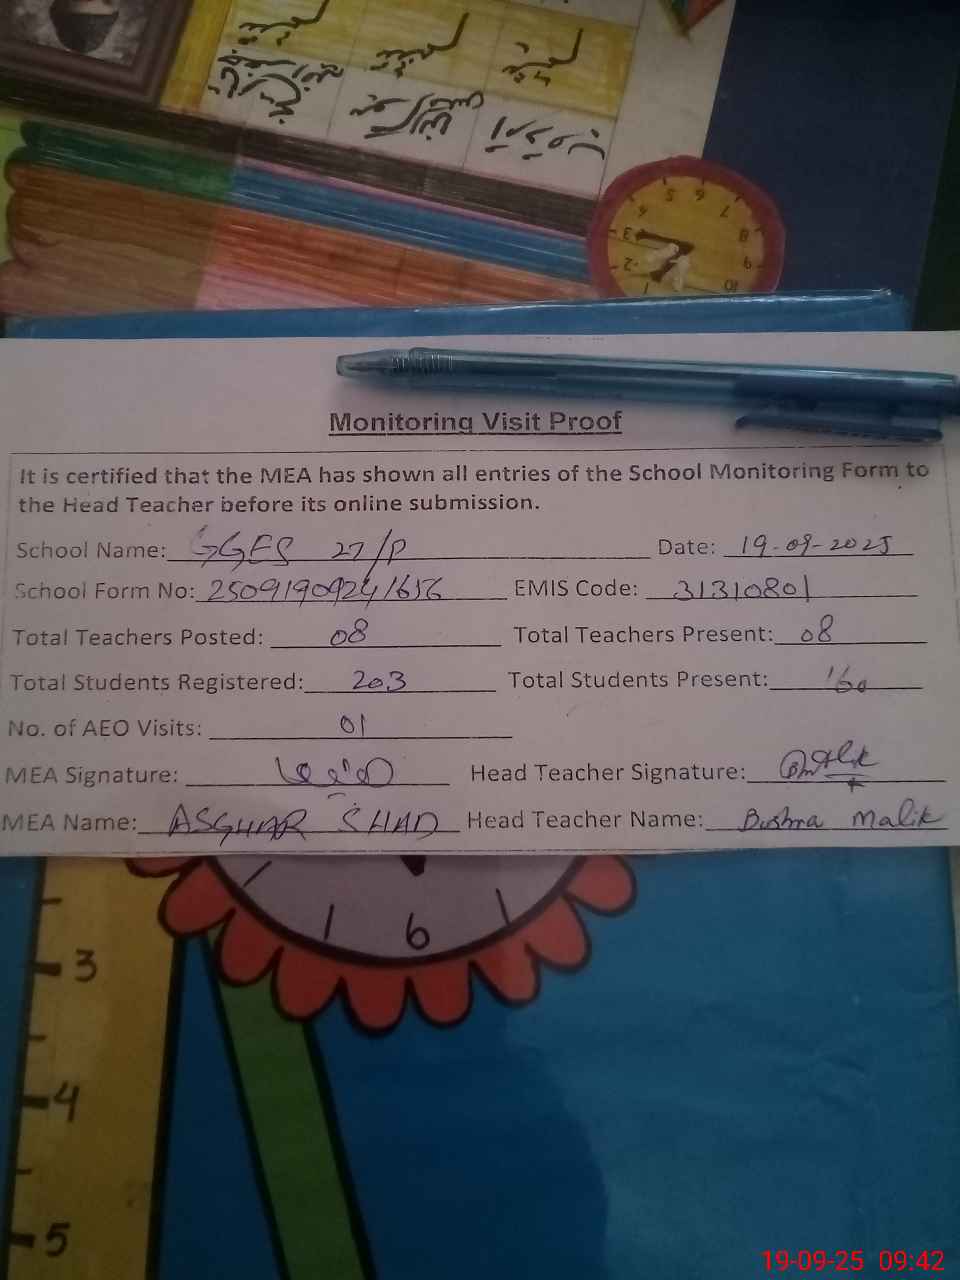 5 6 7
4 8
3 9
2 10
1
Monitoring Visit Proof
It is certified that the MEA has shown all entries of the School Monitoring Form to
the Head Teacher before its online submission.
School Name: GGES 27/P Date: 19-09-2025
School Form No: 25091909241656 EMIS Code: 31310801
Total Teachers Posted: 08 Total Teachers Present: 08
Total Students Registered: 203 Total Students Present: 160
No. of AEO Visits: 01
MEA Signature: Head Teacher Signature:
MEA Name: ASGHAR SHAD Head Teacher Name: Bushra Malik
6
3
4
5
19-09-25 09:42